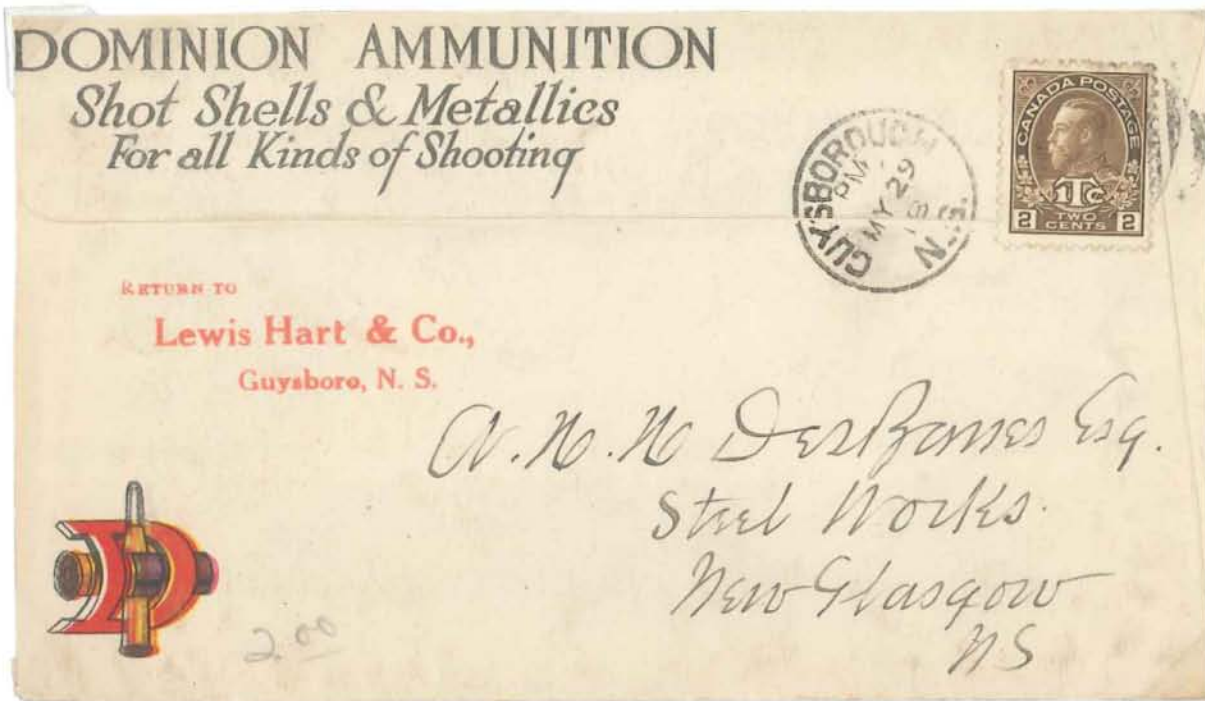 DOMINION AMMUNITION
Shot Shells & Metallics
For all Kinds of Shooting
GUYSBOROUGH
PM
MY 29
N.S.
CANADA POSTAGE
1Tc
2 TWO CENTS 2
RETURN TO
Lewis Hart & Co.,
Guysboro, N. S.
DesBarres Esq.
Steel Works.
New Glasgow
NS
D
2.00